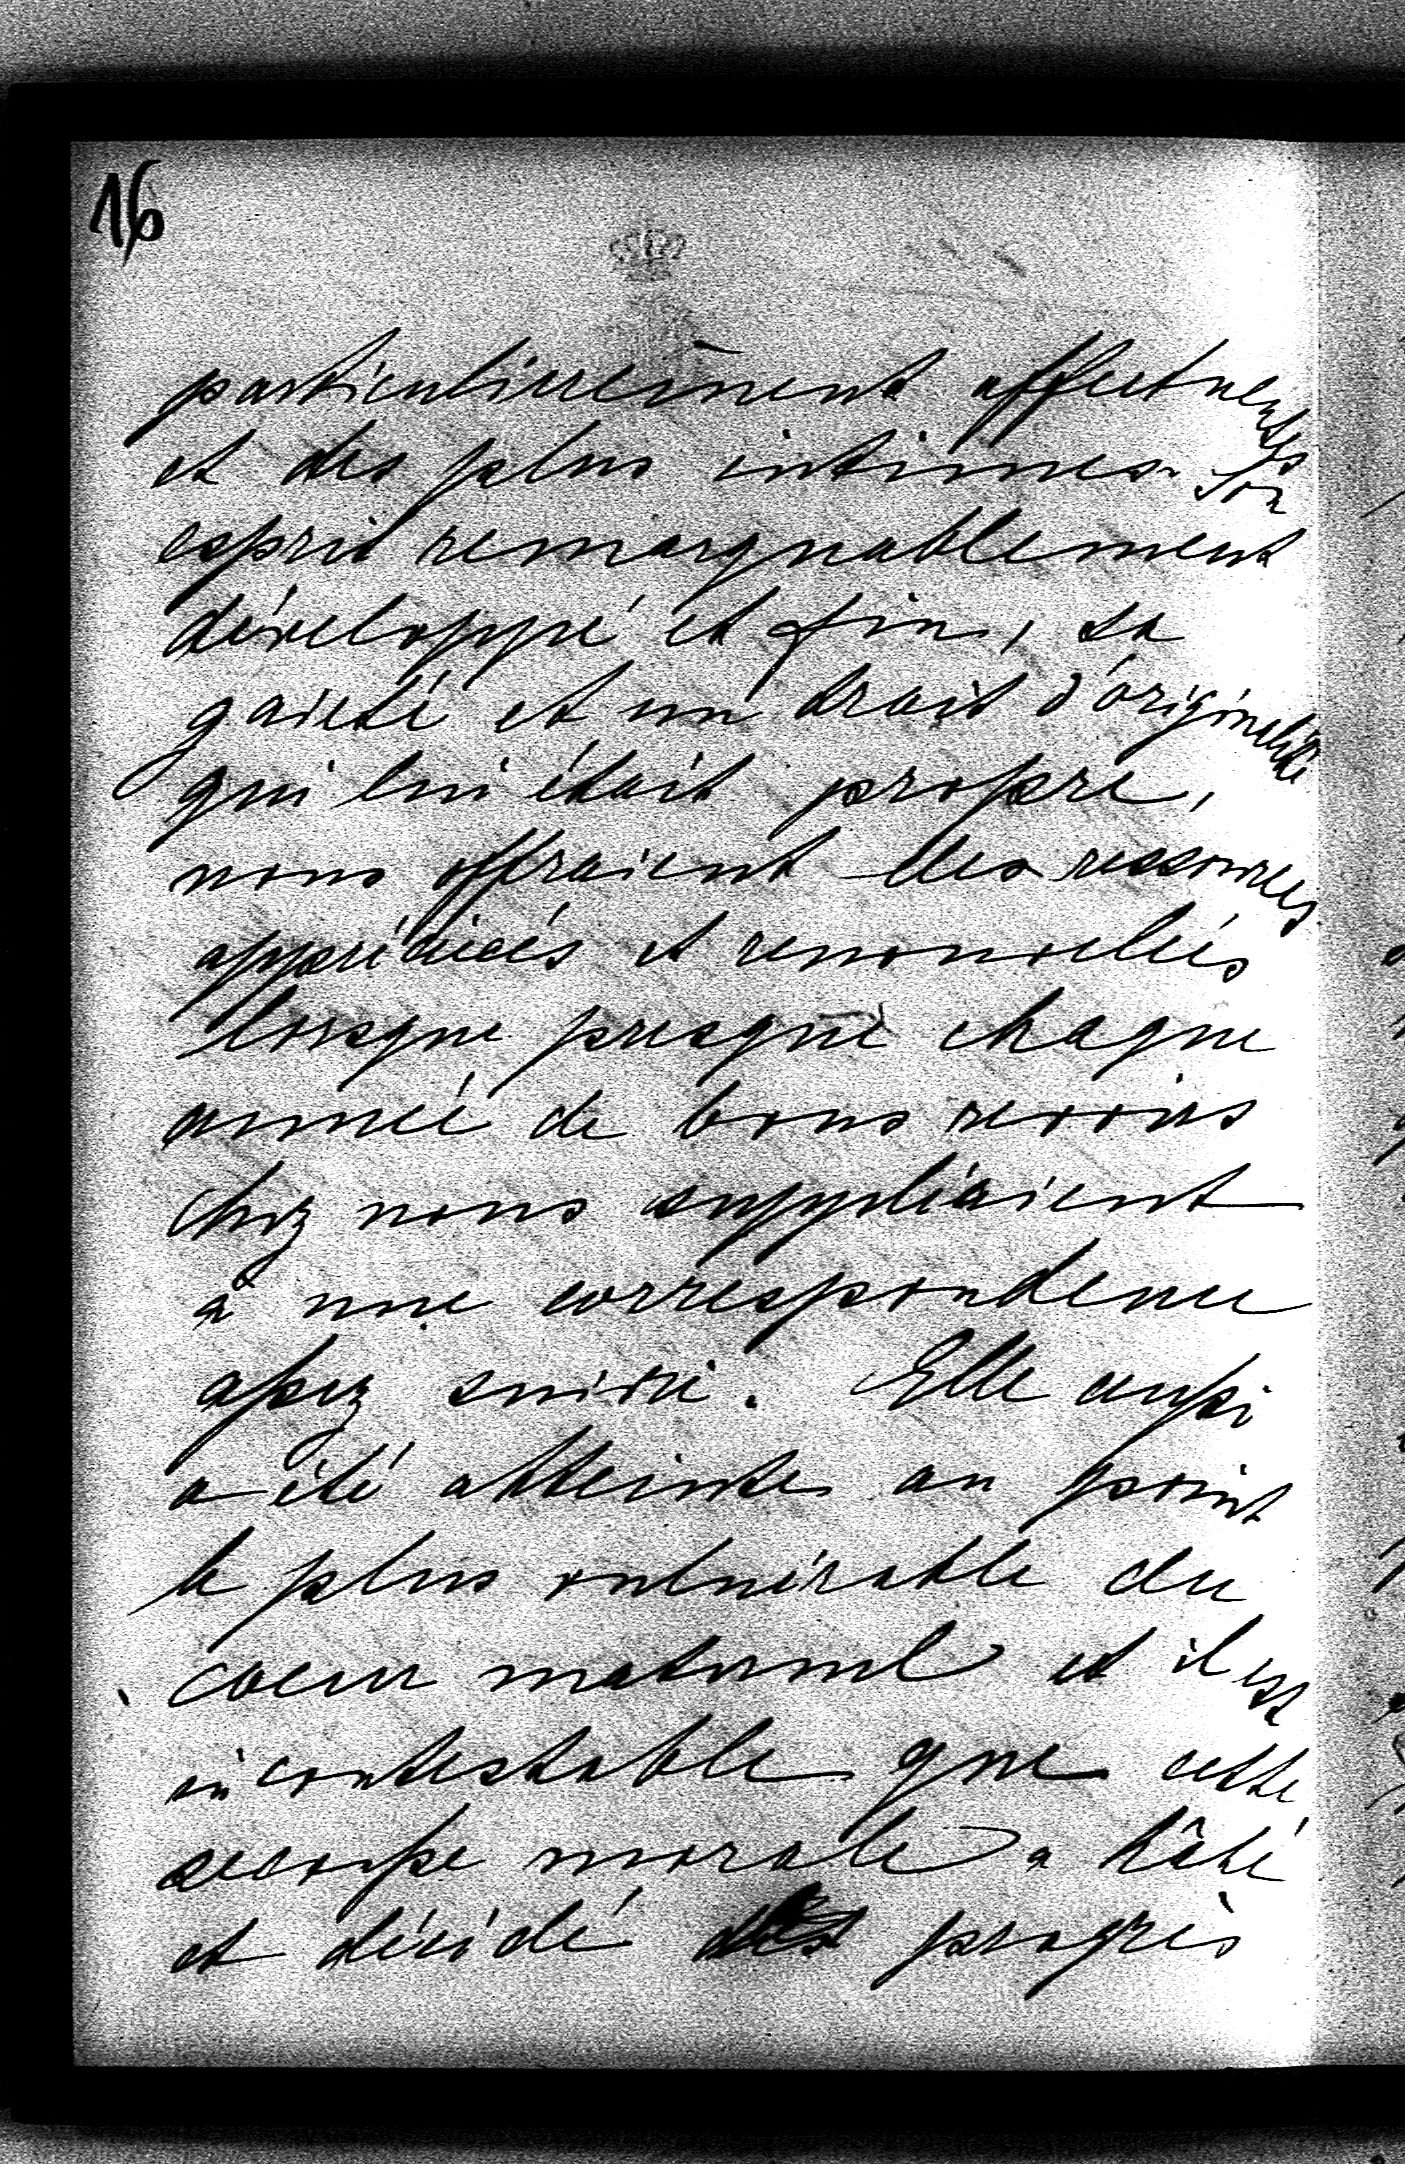 16
particulièrement affectueuses
et des plus intimes. Son
esprit remarquablement
développé et fin, sa
gaieté et un trait d'originalité
qui lui était propre,
nous offraient des ressources
appréciées et renouvelées
lorsque presque chaque
année de bons revoirs
chez nous suppléaient
à une correspondence
assez suivie. Elle aussi
a été atteinte au point
le plus vulnérable du
coeur maternel et il est
incontestable que cette
secousse morale a hâté
et décidé progrès